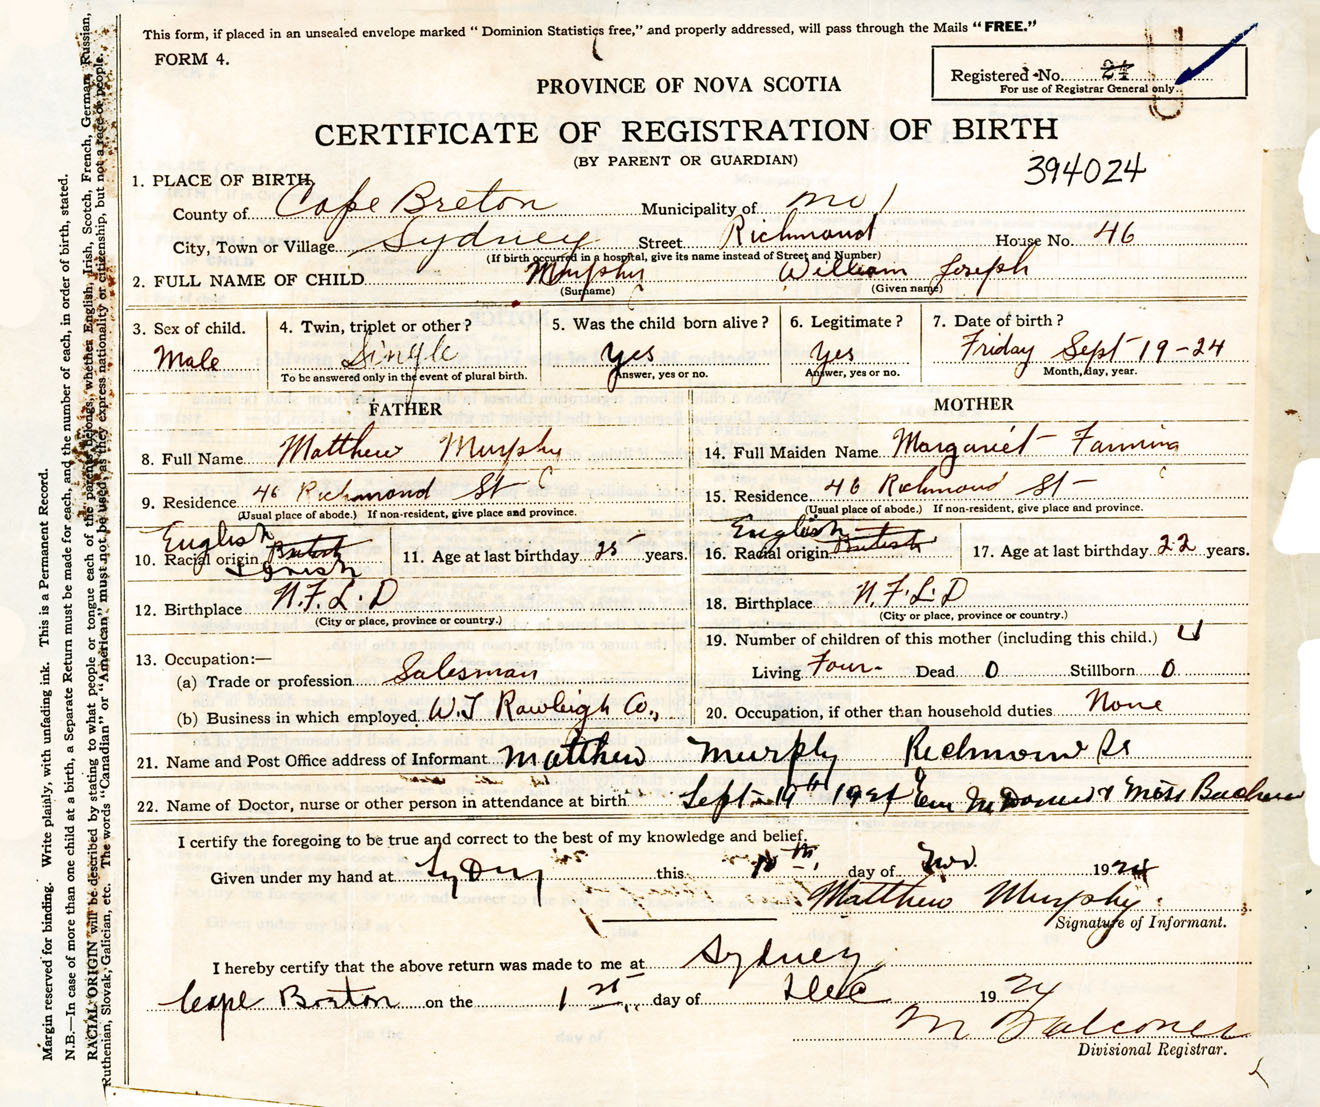 This form, if placed in an unsealed envelope marked “ Dominion Statistics free,” and properly addressed, will pass through the Mails “ FREE.”
FORM 4.
Registered No. 24
For use of Registrar General only.
PROVINCE OF NOVA SCOTIA
CERTIFICATE OF REGISTRATION OF BIRTH
(BY PARENT OR GUARDIAN)
394024
1. PLACE OF BIRTH
County of Cape Breton Municipality of
City, Town or Village Sydney Street Richmond House No. 46
(If birth occurred in a hospital, give its name instead of Street and Number)
2. FULL NAME OF CHILD Murphy William Joseph
(Surname) (Given name)
3. Sex of child. Male
4. Twin, triplet or other? Single
To be answered only in the event of plural birth.
5. Was the child born alive? yes
Answer, yes or no.
6. Legitimate? yes
Answer, yes or no.
7. Date of birth? Friday Sept 19-24
Month, day, year.
FATHER
8. Full Name Matthew Murphy
9. Residence 46 Richmond St
(Usual place of abode.) If non-resident, give place and province.
English
10. Racial origin British
+ Irish
11. Age at last birthday 25 years.
12. Birthplace N.F.L.D
(City or place, province or country.)
13. Occupation:—
(a) Trade or profession Salesman
(b) Business in which employed W.T Rawleigh Co.,
MOTHER
14. Full Maiden Name Margaret Fanning
15. Residence 46 Richmond St
(Usual place of abode.) If non-resident, give place and province.
English
16. Racial origin British
17. Age at last birthday 22 years.
18. Birthplace N.F.L.D
(City or place, province or country.)
19. Number of children of this mother (including this child.) 4
Living Four- Dead 0 Stillborn 0
20. Occupation, if other than household duties None
21. Name and Post Office address of Informant Matthew Murphy Richmond St
22. Name of Doctor, nurse or other person in attendance at birth Sept 19th 1924 McDonald + Miss
I certify the foregoing to be true and correct to the best of my knowledge and belief.
Given under my hand at Sydney this 10th, day of Nov 1924
Matthew Murphy
Signature of Informant.
I hereby certify that the above return was made to me at Sydney
Cape Breton on the 1st day of Dec 1924
M Falconer
Divisional Registrar.
Margin reserved for binding. Write plainly, with unfading ink. This is a Permanent Record.
N.B.—In case of more than one child at a birth, a Separate Return must be made for each, and the number of each, in order of birth, stated.
RACIAL ORIGIN will be described by stating to what people or tongue each of the parents belongs, whether English, Irish, Scotch, French, German, Russian,
Ruthenian, Slovak, Galician, etc. The words “Canadian” or “American” must not be used, as they express nationality or citizenship, but not a race or people.